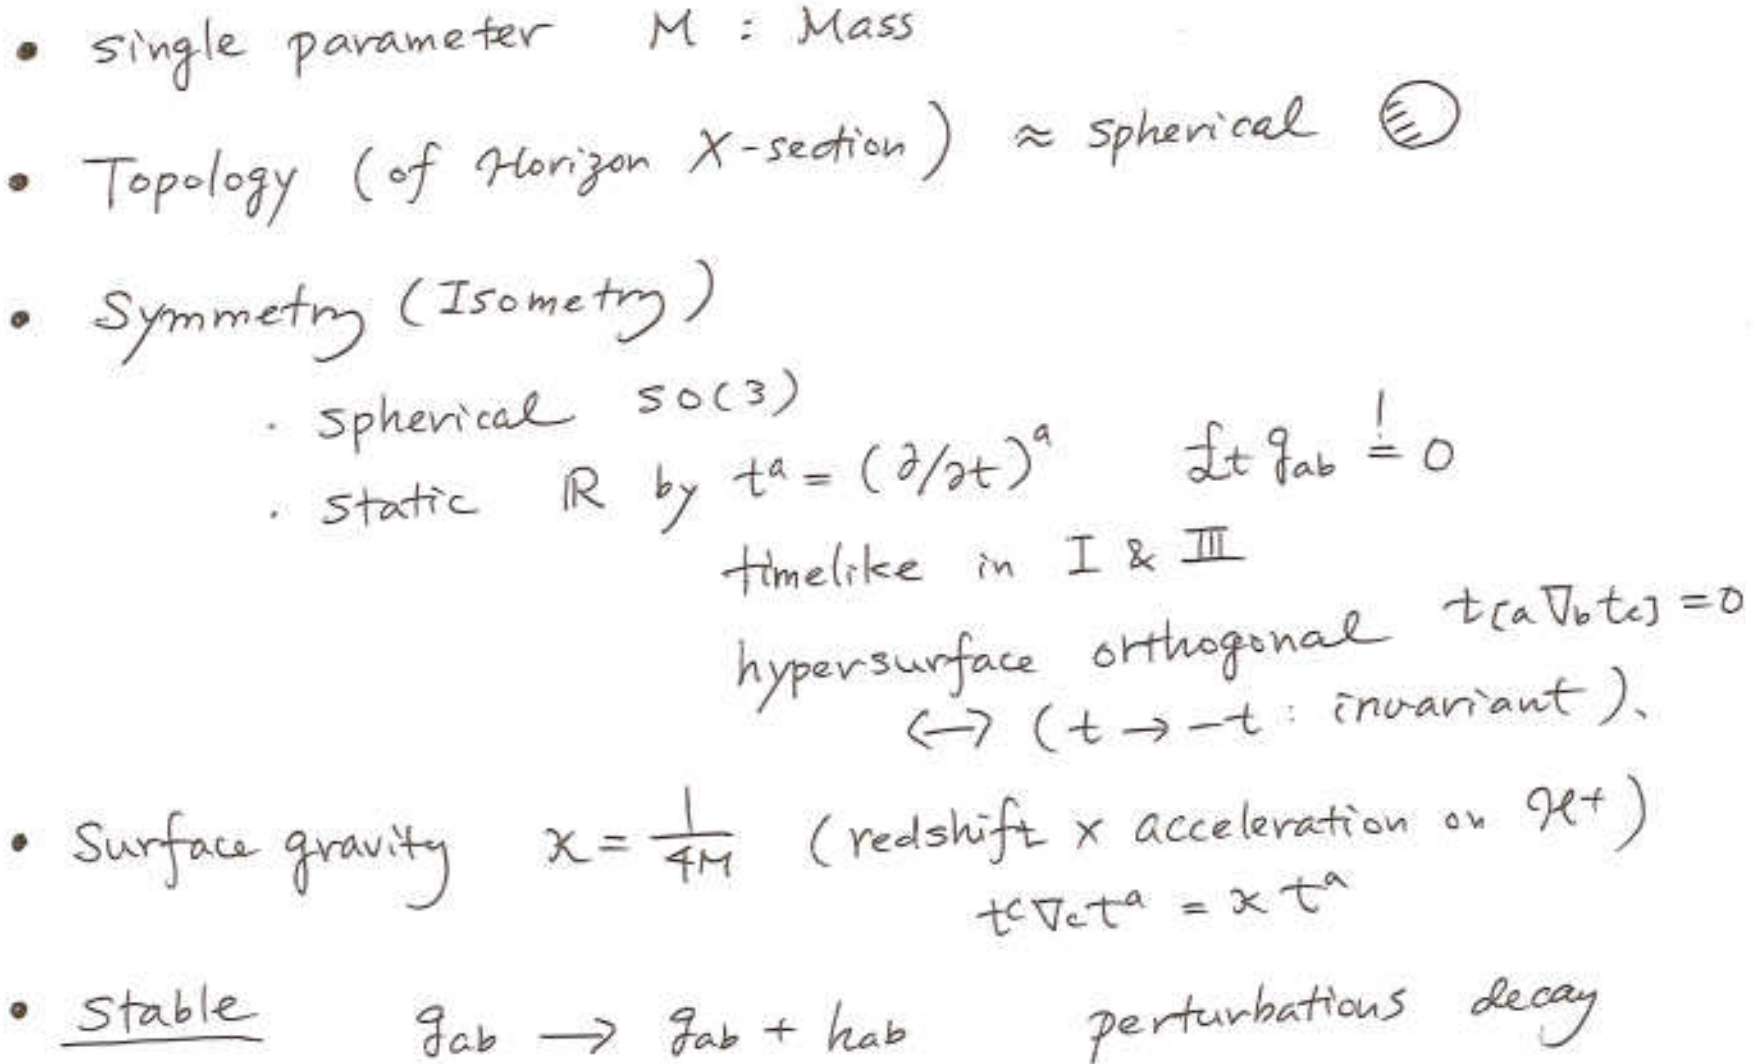 • single parameter M : Mass
• Topology (of Horizon X-section) ≈ spherical
• Symmetry (Isometry)
· spherical SO(3)
· static ℝ by tᵃ = (∂/∂t)ᵃ £t gab != 0
timelike in I & III
hypersurface orthogonal t[a ∇b tc] = 0
↔ (t → -t : invariant).
• Surface gravity κ = 1/4M (redshift × acceleration on ℋ+)
tᶜ∇c tᵃ = κ tᵃ
• Stable gab → gab + hab perturbations decay